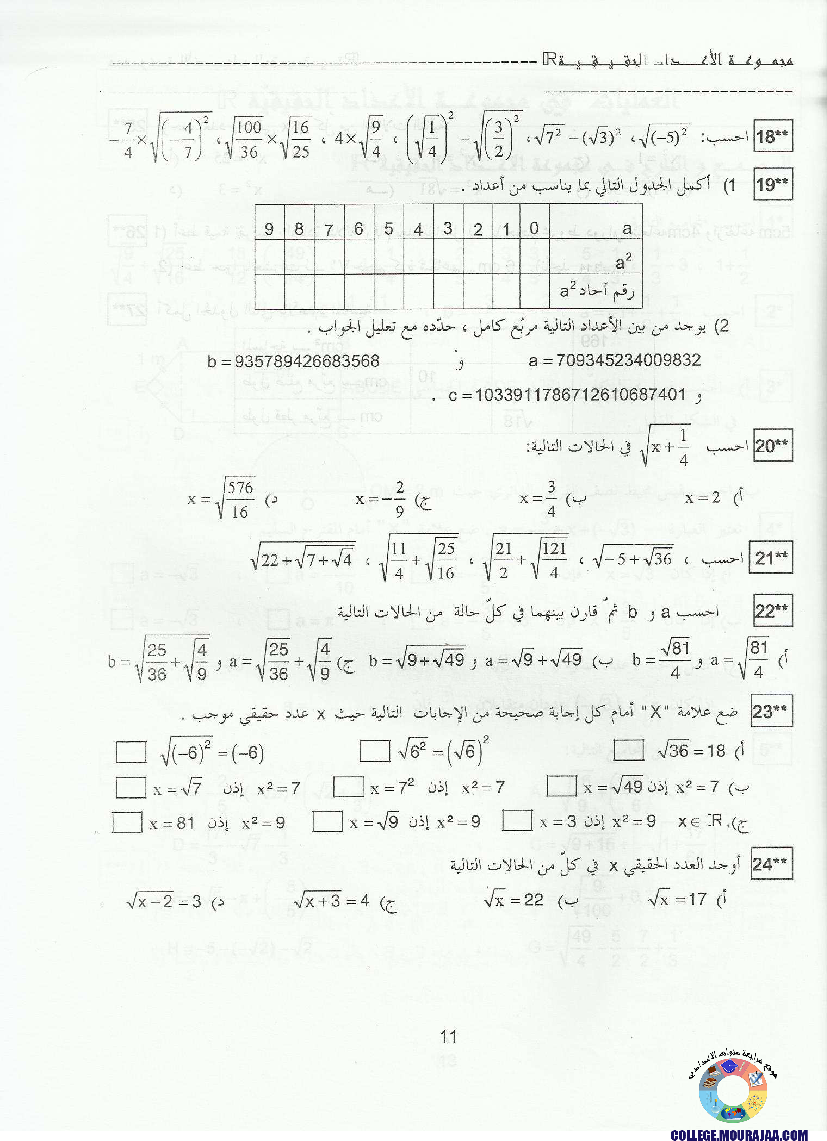 مجموعة الأعداد الحقيقية IR
18** احسب: √(-5)² ، √7² - (√3)² ، √(3/2)² - (√(1/4))² ، 4×√(9/4) ، √(100/36) × √(16/25) ، -7/4 × √(-4/7)²
19** 1) أكمل الجدول التالي بما يناسب من أعداد .
a 0 1 2 3 4 5 6 7 8 9
a²
رقم آحاد a²
2) يوجد من بين الأعداد التالية مربّع كامل ، حدّده مع تعليل الجواب .
a = 709345234009832 و b = 935789426683568
و c = 1033911786712610687401 .
20** احسب √(x + 1/4) في الحالات التالية:
أ) x = 2 ب) x = 3/4 ج) x = -2/9 د) x = √(576/16)
21** احسب ، √(-5+√36) ، √(21/2 + √(121/4)) ، √(11/4 + √(25/16)) ، √(22+√(7+√4))
22** احسب a و b ثمّ قارن بينهما في كلّ حالة من الحالات التالية
أ) a = √(81/4) و b = √81/4 ب) a = √9 + √49 و b = √(9+√49) ج) a = √(25/36) + √(4/9) و b = √(25/36 + √(4/9))
23** ضع علامة "X" أمام كل إجابة صحيحة من الإجابات التالية حيث x عدد حقيقي موجب .
أ) √36 = 18 √6² = (√6)² √(-6)² = (-6)
ب) x² = 7 إذن x = √49 x² = 7 إذن x = 7² x² = 7 إذن x = √7
ج) x ∈ IR، x² = 9 إذن x = 3 x² = 9 إذن x = √9 x² = 9 إذن x = 81
24** أوجد العدد الحقيقي x في كلّ من الحالات التالية
أ) √x = 17 ب) √x = 22 ج) √(x+3) = 4 د) √(x-2) = 3
11
موقع مراجعة
COLLEGE.MOURAJAA.COM